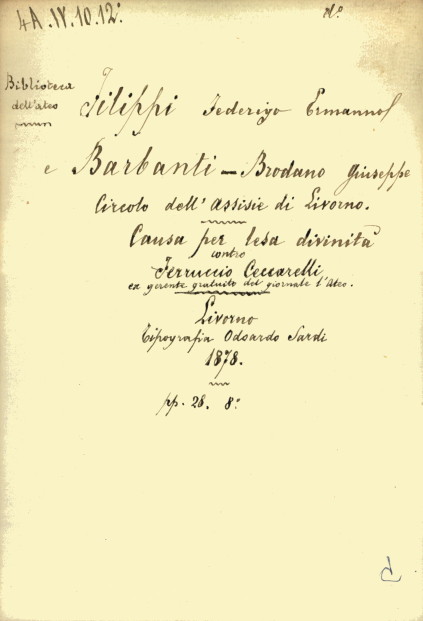 4A.IV.10.12:
N.º
Biblioteca
dell'ateo
Filippi Federigo Ermanno
e Barbanti - Brodano Giuseppe
Circolo dell'assisie di Livorno.
Causa per lesa divinità
contro
Ferruccio Ceccarelli
ex gerente gratuito del giornale l'Ateo.
Livorno
Tipografia Odoardo Sardi
1878.
pp. 28. 8º